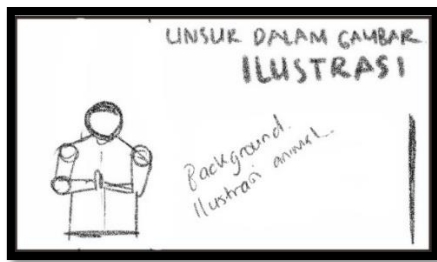 UNSUR DALAM GAMBAR
ILUSTRASI
Background
Ilustrasi animal